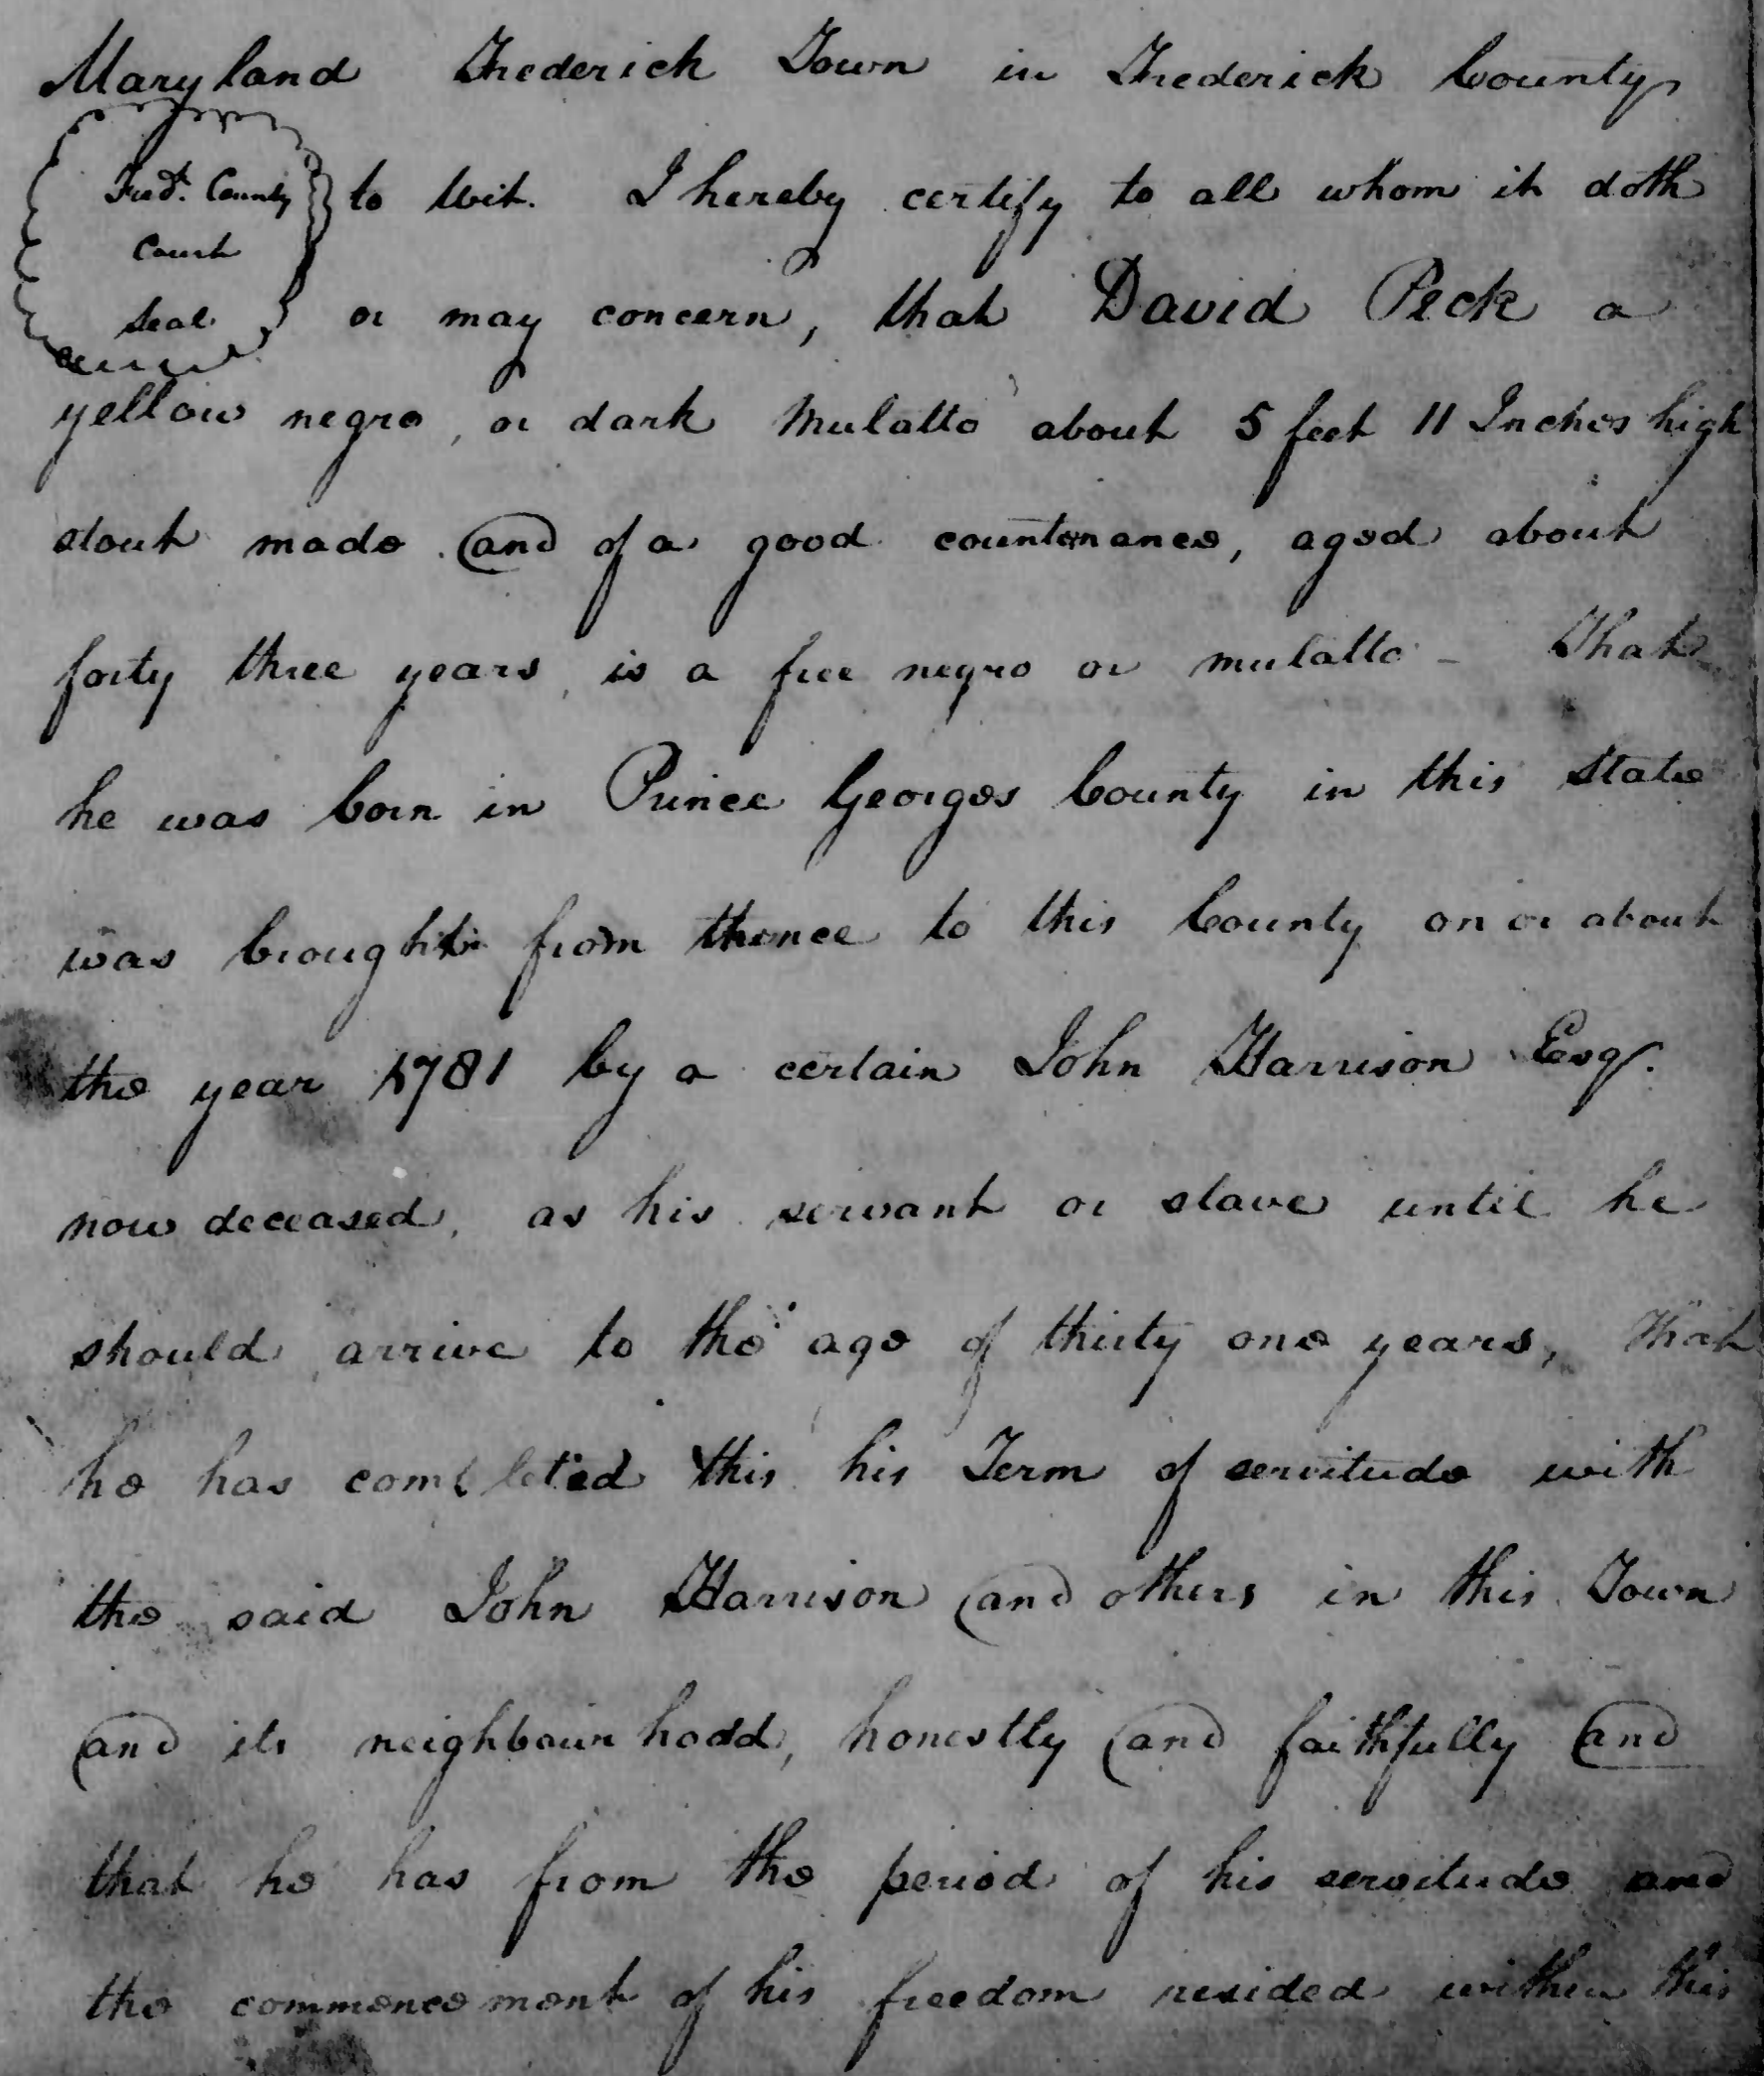 Maryland Frederick Town in Frederick County
Fred.k County
Court
Seal
to Wit. I hereby certify to all whom it doth
or may concern, that David Peck a
yellow negro, or dark Mulatto about 5 feet 11 Inches high
stout made and of a good countenance, aged about
forty three years, is a free negro or mulatto - That
he was born in Prince Georges County in this State
was brought from thence to this County on or about
the year 1781 by a certain John Harrison Esqr.
now deceased, as his servant or slave until he
should arrive to the age of thirty one years, that
he has completed this his Term of servitude with
the said John Harrison and others in this Town
and its neighbourhood, honestly and faithfully and
that he has from the period of his servitude and
the commencement of his freedom resided within this